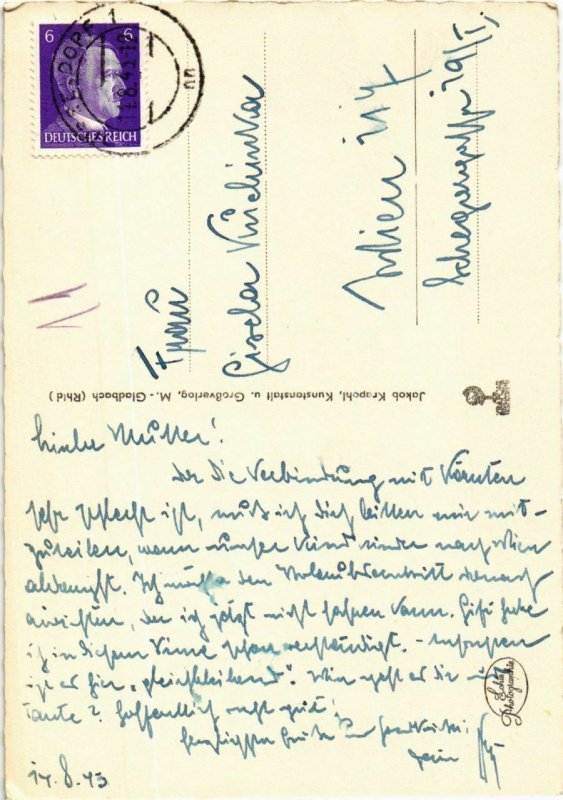 6 6
DEUTSCHES REICH
DORF 1
Frau
Gisela
Wien
Jakob Krapohl, Kunstanstalt u. Großverlag, M.-Gladbach (Rhld)
Liebe Mutter!
Da die Verbindung mit Kärnten
sehr schlecht ist, muß ich dich bitten mir mit-
zuteilen, wann unser Kind wieder nach Wien
abdampft. Ich muß den Urlaubsantritt darnach
einrichten, da ich jetzt nicht fahren kann. habe
ich in diesem Sinne schon verständigt. -
ist es hier „gleichbleibend“. Wie geht es dir u.
Tante? Hoffentlich recht gut!
Herzlichste Grüße u.
dein
14.8.43
Echte Photographie